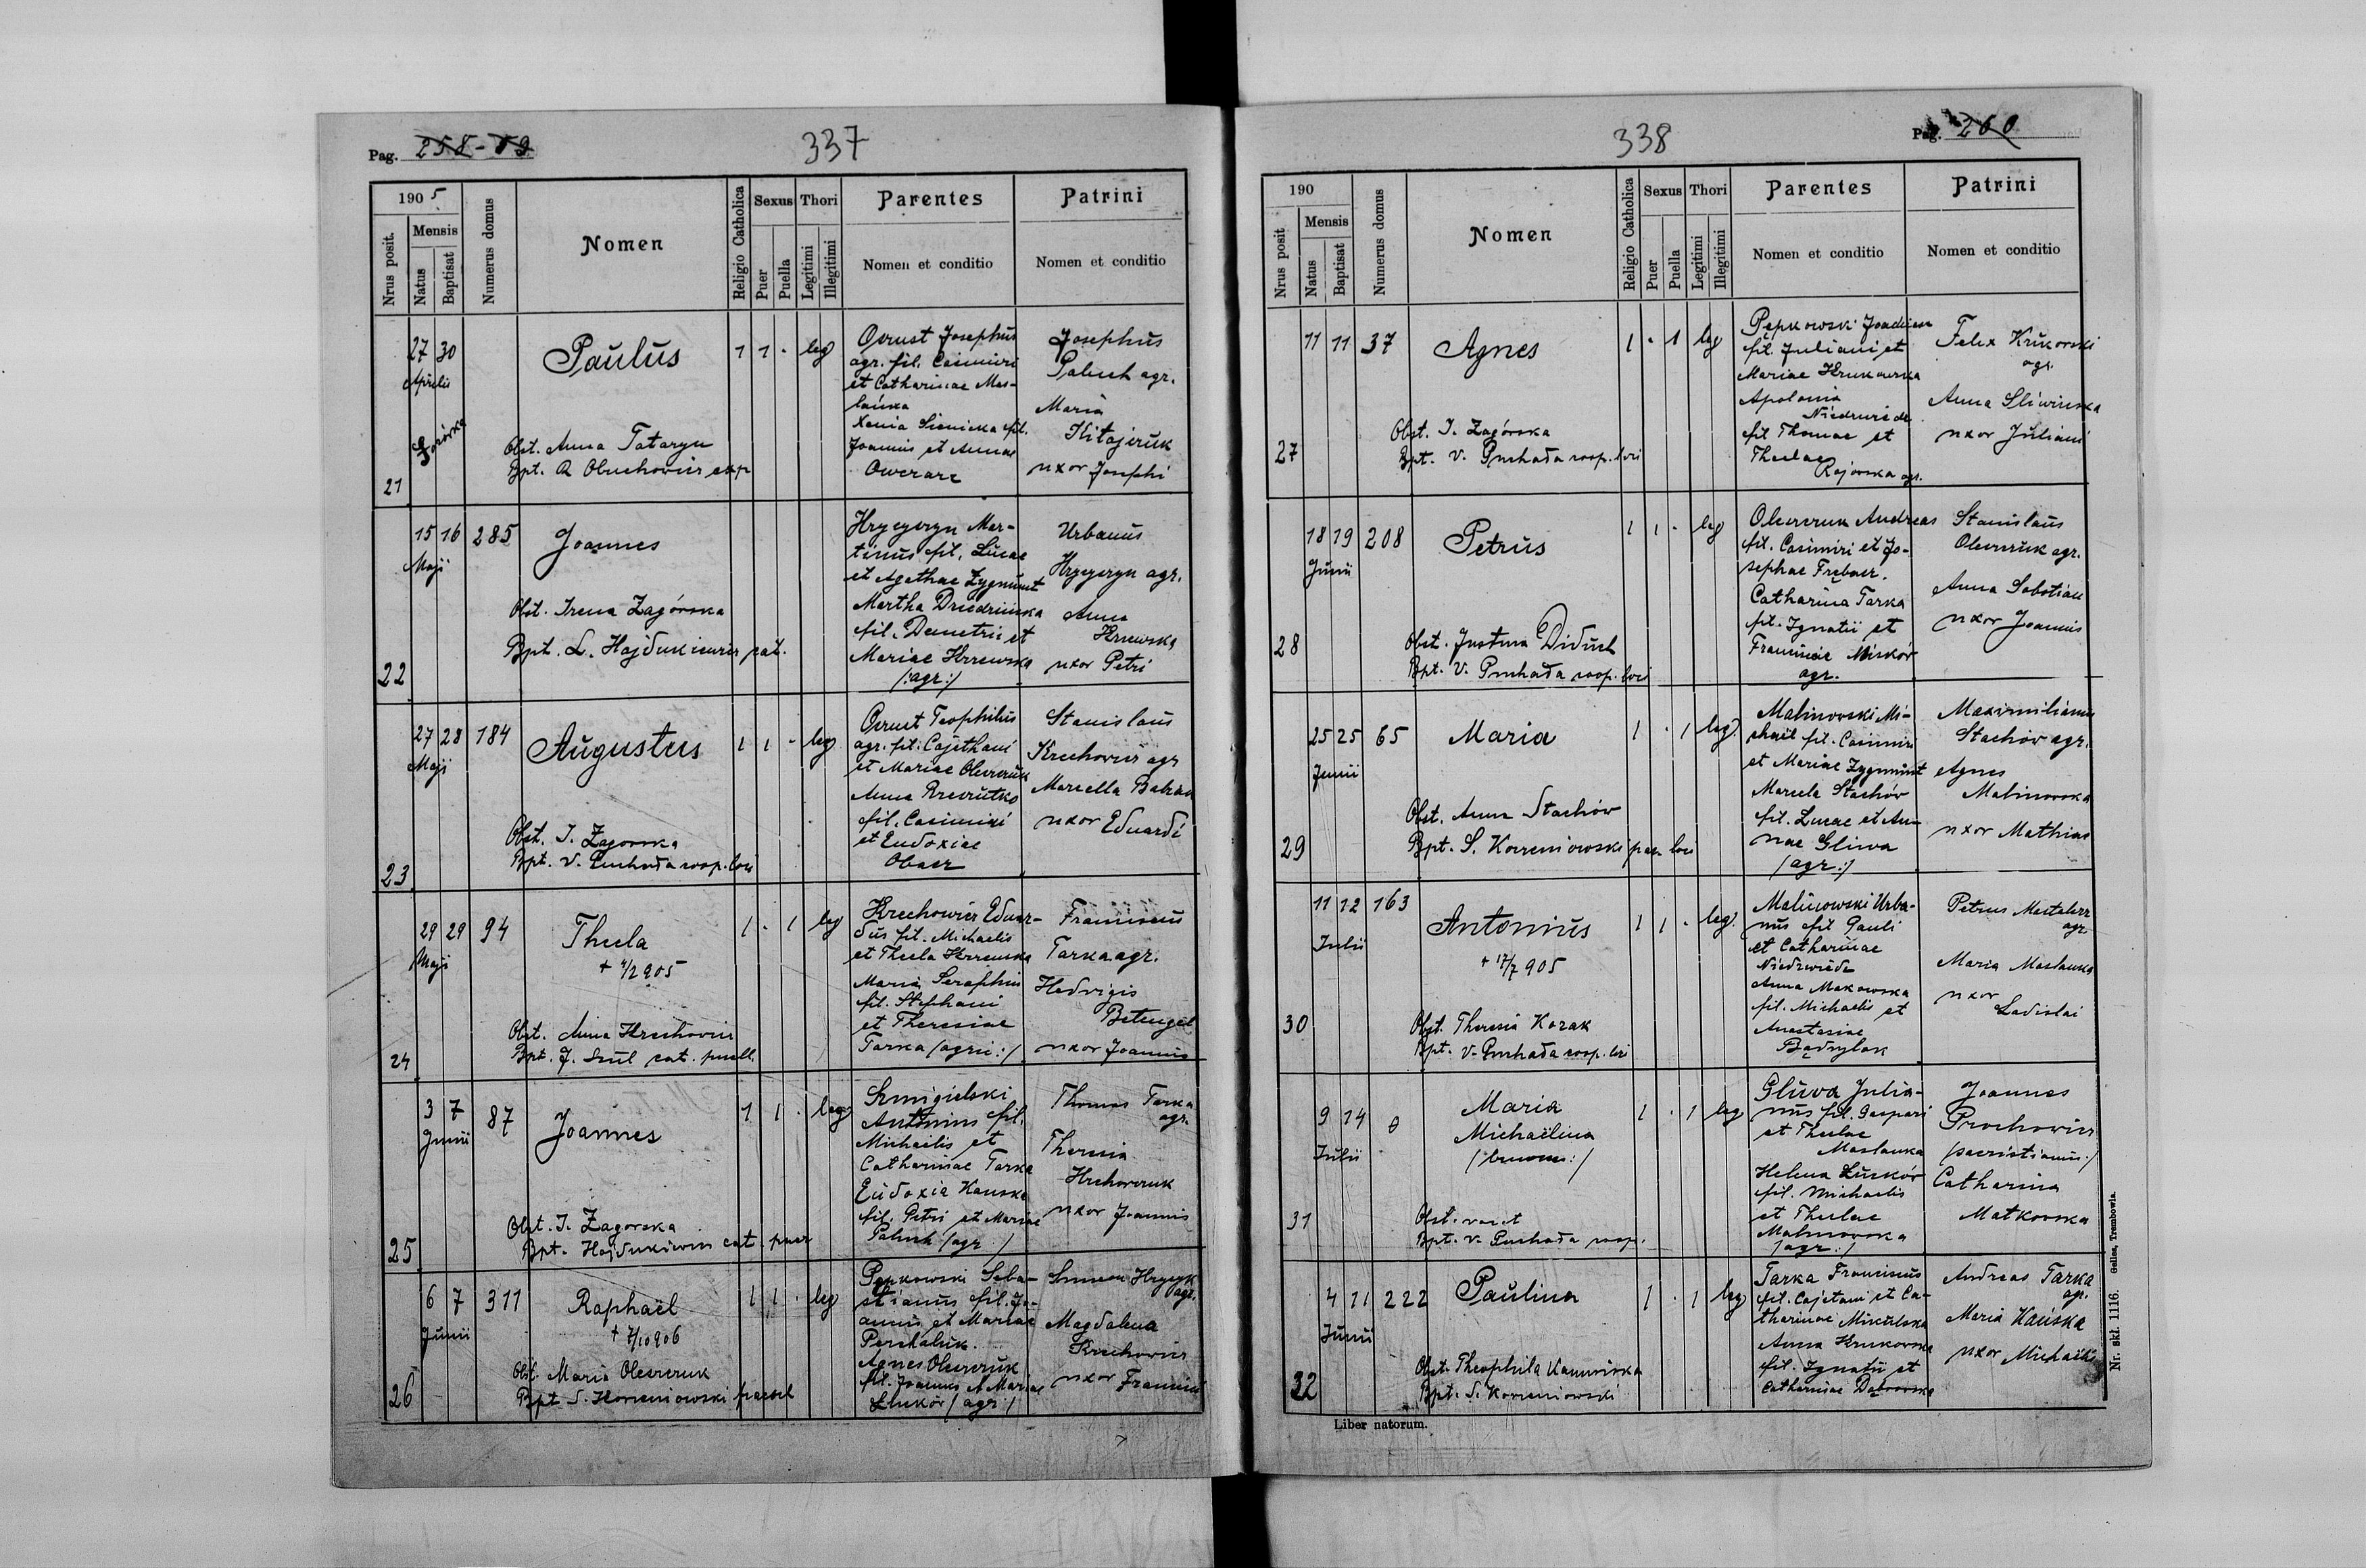 Pag. 258-59
337
1905
Nrus posit.
Mensis
Natus
Baptisat
Numerus domus
Nomen
Religio Catholica
Sexus
Puer
Puella
Thori
Legitimi
Illegitimi
Parentes
Nomen et conditio
Patrini
Nomen et conditio
21
27 30
Aprilis
Paulus
1 1 - leg
Obst. Anna Tataryn
Bpt. A Obuchowicz exp
Josephus
agr. fil. Casimiri
et Catharinae Mas-
lanka
Xenia Sienicka fil.
Joannis et Annae
Josephus
Paluch agr.
Maria
uxor Josephi
22
15 16 285
Maji
Joannes
Obst. Irena Zagórska
Bpt. L. Hajdukiewicz cat.
Hryegoryn Mar-
tinus fil. Lucae
et Agathae Zygmunt
Martha Driedrinska
fil. Demetrii et
Mariae
/:agr:/
Urbanus
Hryegoryn agr.
Anna
uxor Petri
23
27 28 184
Maji
Augustus
1 1 - leg
Obst. I. Zagorska
Bpt. V. Puchała coop. loci
Teophilus
agr. fil. Cajethani
et Mariae Olewczuk
Anna
fil. Casimiri
et Eudoxiae
Stanislaus
Krechowicz agr
Marcella
uxor Eduardi
24
29 29 94
Maji
Thecla
1 - 1 leg
Obst. Anna Krechowicz
Bpt. J. cat. puell.
Krechowicz Eduar-
dus fil. Michaelis
et Thecla
Maria Seraphin
fil. Stephani
et Theresiae
Tarka /agric:/
Franciscus
Tarka agr.
Hedvigis
uxor Joannis
25
3 7 87
Junii
Joannes
1 1 . leg
Obst. I. Zagorska
Bpt. Hajdukiewicz cat. puer
Antonius fil.
Michaelis et
Catharinae Tarka
Eudoxia Kanska
fil. Petri et Mariae
Paluch /agr:/
Thomas Tarka
agr.
Theresia
Hrehorczuk
uxor Joannis
26
6 7 311
Junii
Raphaël
† 7/10 906
1 1 . leg
Obst. Maria Olewczuk
Bpt S. Korzeniowski
Pepkowski Seba-
stianus fil. Jo-
annis et Mariae
Agnes Olewczuk
fil. Joannis et Mariae
/agr:/
agr.
Magdalena
Krechowicz
uxor Francisci
338
Pag. 260
190
Nrus posit
Mensis
Natus
Baptisat
Numerus domus
Nomen
Religio Catholica
Sexus
Puer
Puella
Thori
Legitimi
Illegitimi
Parentes
Nomen et conditio
Patrini
Nomen et conditio
27
11 11 37
Agnes
1 - 1 leg
Obst. I. Zagórska
Bpt. V. Puchała coop. loci
Pepkowski Joachim
fil. Juliani et
Mariae Krukowska
Apolonia
Niedzwiedz
fil Thomae et
Theclae
Rajowska agr.
Felix Krukowski
agr.
Anna Sliwinska
uxor Juliani
28
18 19 208
Junii
Petrus
1 1 - leg
Obst. Justina Diduch
Bpt. V. Puchała coop. loci
Olewczuk Andreas
fil. Casimiri et Jo-
sephae
Catharina Tarka
fil. Ignatii et
Franciscae Miskór
agr.
Stanislaus
Olewczuk agr.
Anna
uxor Joannis
29
25 25 65
Junii
Maria
1 . 1 leg.
Obst. Anna Stachów
Bpt. S. Korzeniowski par. loci
Malinowski Mi-
chaël fil. Casimiri
et Mariae Zygmunt
Marcela Stachów
fil. Lucae et An-
nae Gliwa
/agr:/
Maximilianus
Stachów agr.
Agnes
Malinowska
uxor Mathiae
30
11 12 163
Julii
Antonius
† 17/7 905
1 1 . leg.
Obst. Theresia Kozak
Bpt. V. Puchała coop. loci
Malinowski Urba-
nus fil Pauli
et Catharinae
Niedzwiedz
Anna Makowska
fil. Michaelis et
Anastasiae
Petrus
agr.
Maria Maslanka
uxor
Ladislai
31
9 14
Julii
Maria
Michaëlina
1 . 1 leg
Bpt. V. Puchała coop.
Gliwa Julia-
nus fil. Gaspari
et Theclae
Maslanka
Helena
fil. Michaelis
et Theclae
Malinowska
/agr:/
Joannes
Prochowicz
Catharina
Matkowska
32
4 11 222
Junii
Paulina
1 . 1 leg
Obst. Theophila
Bpt. S. Korzeniowski
Tarka Franciscus
fil. Cajetani et Ca-
tharinae
Anna Krukowska
fil. Ignatii et
Catharinae Dąbrowska
Andreas Tarka
agr.
Maria Kańska
uxor Michaëlis
Liber natorum.
Nr. skl. 1116. Galles, Trembowla.